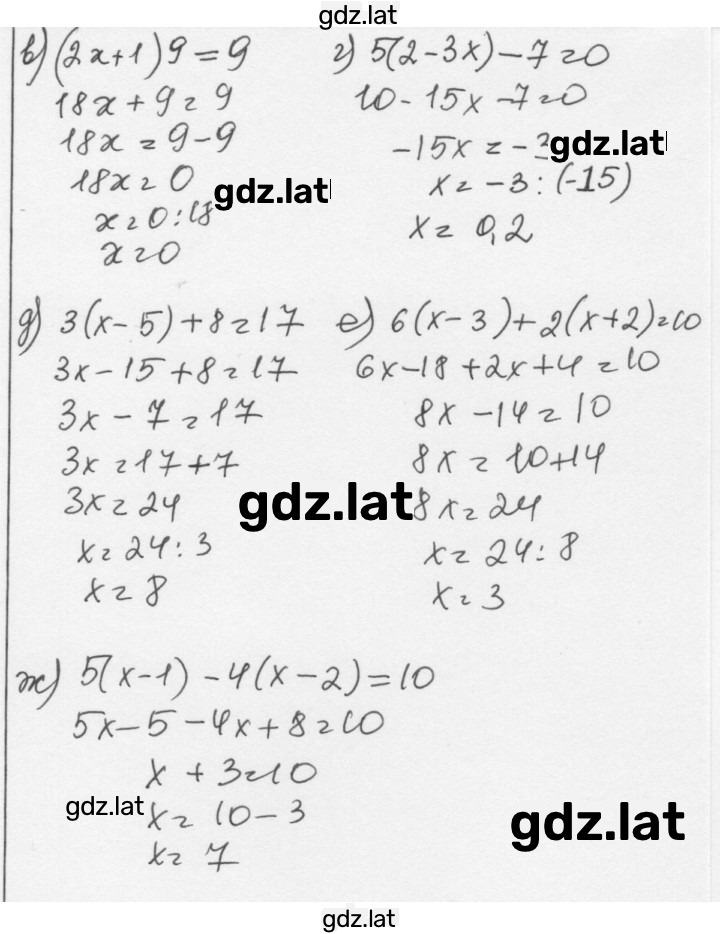 gdz.lat
в) (2x+1)9=9
18x+9=9
18x=9-9
18x=0
gdz.lat
x=0:18
x=0
г) 5(2-3x)-7=0
10-15x-7=0
-15x=-3
gdz.lat
x=-3:(-15)
x=0,2
д) 3(x-5)+8=17
3x-15+8=17
3x-7=17
3x=17+7
3x=24
x=24:3
x=8
gdz.lat
е) 6(x-3)+2(x+2)=10
6x-18+2x+4=10
8x-14=10
8x=10+14
8x=24
x=24:8
x=3
ж) 5(x-1)-4(x-2)=10
5x-5-4x+8=10
x+3=10
gdz.lat
x=10-3
x=7
gdz.lat
gdz.lat